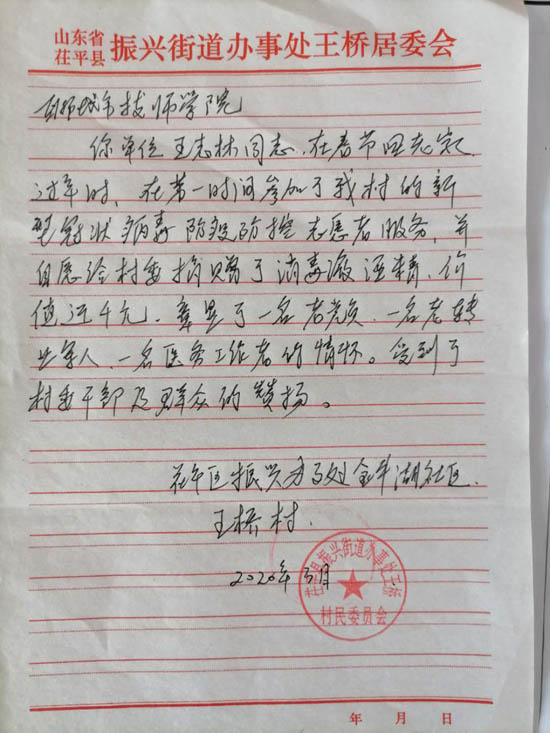 山东省
茌平县 振兴街道办事处王桥居委会
聊城市技师学院
你单位王志林同志,在春节回老家
过年时、在第一时间参加了我村的新
型冠状病毒防疫防控志愿者服务,并
自愿给村委捐赠了消毒液酒精、价
值近千元、彰显了一名老党员、一名老转
业军人、一名医务工作者的情怀。受到了
村委干部及群众的赞扬。
茌平区振兴办事处金牛湖社区
王桥村.
2020年3月
茌平县振兴街道办事处王桥
村民委员会
年 月 日